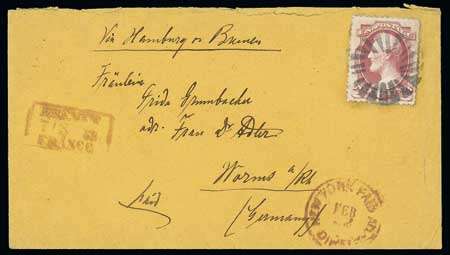 Via Hamburg or Bremen
Fräulein
Frida Grumbacher
adr. Frau Dr Adler
Worms a/Rh
(Germany)
paid
FRANCO
NEW YORK PAID ALL
FEB